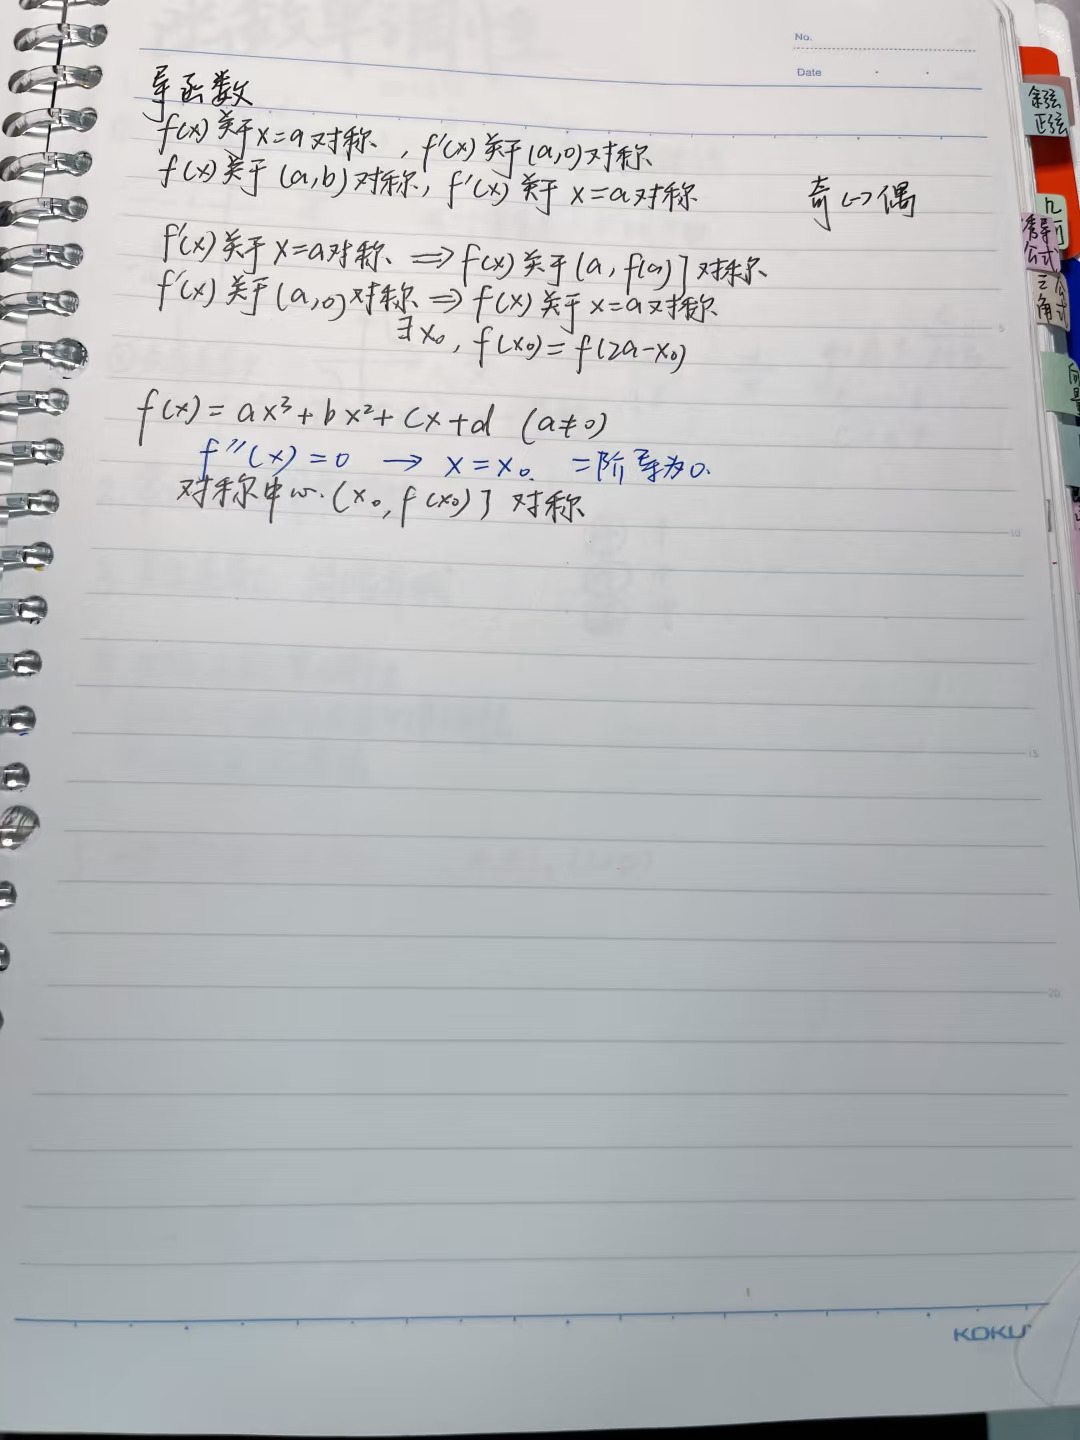 No.
Date
导函数
f(x)关于x=a对称, f'(x)关于(a,0)对称
f(x)关于(a,b)对称, f'(x)关于x=a对称
奇↔偶
f'(x)关于x=a对称 ⇒ f(x)关于(a,f(a)]对称
f'(x)关于(a,0)对称 ⇒ f(x)关于x=a对称
∃x₀, f(x₀)=f(2a-x₀)
f(x)=ax³+bx²+cx+d (a≠0)
f''(x)=0 → x=x₀. 二阶导为0.
对称中心.(x₀,f(x₀)]对称
余弦
正弦
诱导
公式
三
角
公
式
向
量
5
10
15
20
KOKU